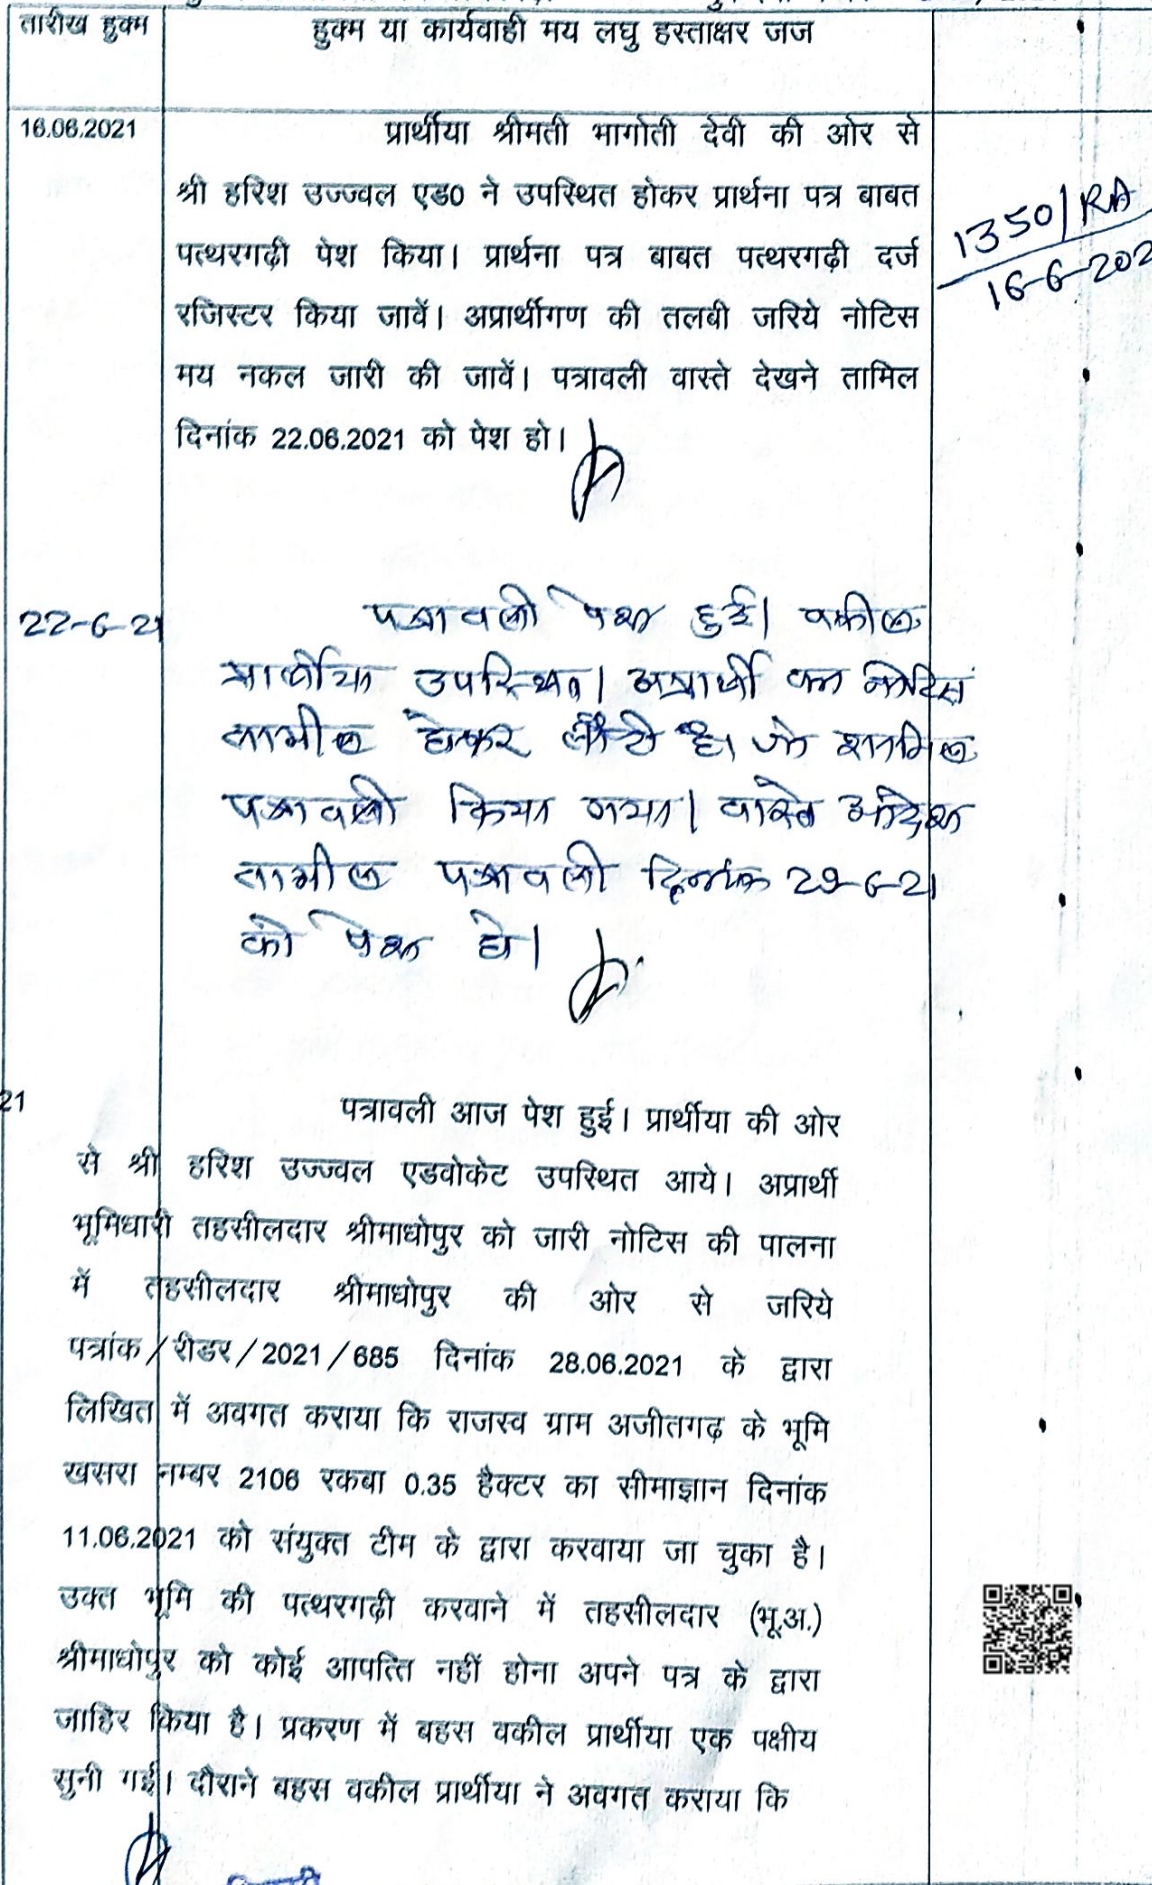 तारीख हुक्म
हुक्म या कार्यवाही मय लघु हस्ताक्षर जज
16.06.2021
प्रार्थीया श्रीमती भागोती देवी की ओर से
श्री हरिश उज्ज्वल एड0 ने उपस्थित होकर प्रार्थना पत्र बाबत
पत्थरगढ़ी पेश किया। प्रार्थना पत्र बाबत पत्थरगढ़ी दर्ज
रजिस्टर किया जावें। अप्रार्थीगण की तलबी जरिये नोटिस
मय नकल जारी की जावें। पत्रावली वास्ते देखने तामिल
दिनांक 22.06.2021 को पेश हो।
1350/RA
16-6-202
22-6-21
पत्रावली पेश हुई। वकील
प्रार्थीया उपस्थित। अप्रार्थी का नोटिस
तामील होकर लौटे है। जो शामिल
पत्रावली किया गया। वास्ते आदेश
तामील पत्रावली दिनांक 29-6-21
को पेश हो।
21
पत्रावली आज पेश हुई। प्रार्थीया की ओर
से श्री हरिश उज्ज्वल एडवोकेट उपस्थित आये। अप्रार्थी
भूमिधारी तहसीलदार श्रीमाधोपुर को जारी नोटिस की पालना
में तहसीलदार श्रीमाधोपुर की ओर से जरिये
पत्रांक/रीडर/2021/685 दिनांक 28.06.2021 के द्वारा
लिखित में अवगत कराया कि राजस्व ग्राम अजीतगढ़ के भूमि
खसरा नम्बर 2106 रकबा 0.35 हैक्टर का सीमाज्ञान दिनांक
11.06.2021 को संयुक्त टीम के द्वारा करवाया जा चुका है।
उक्त भूमि की पत्थरगढ़ी करवाने में तहसीलदार (भू.अ.)
श्रीमाधोपुर को कोई आपत्ति नहीं होना अपने पत्र के द्वारा
जाहिर किया है। प्रकरण में बहस वकील प्रार्थीया एक पक्षीय
सुनी गई। दौराने बहस वकील प्रार्थीया ने अवगत कराया कि